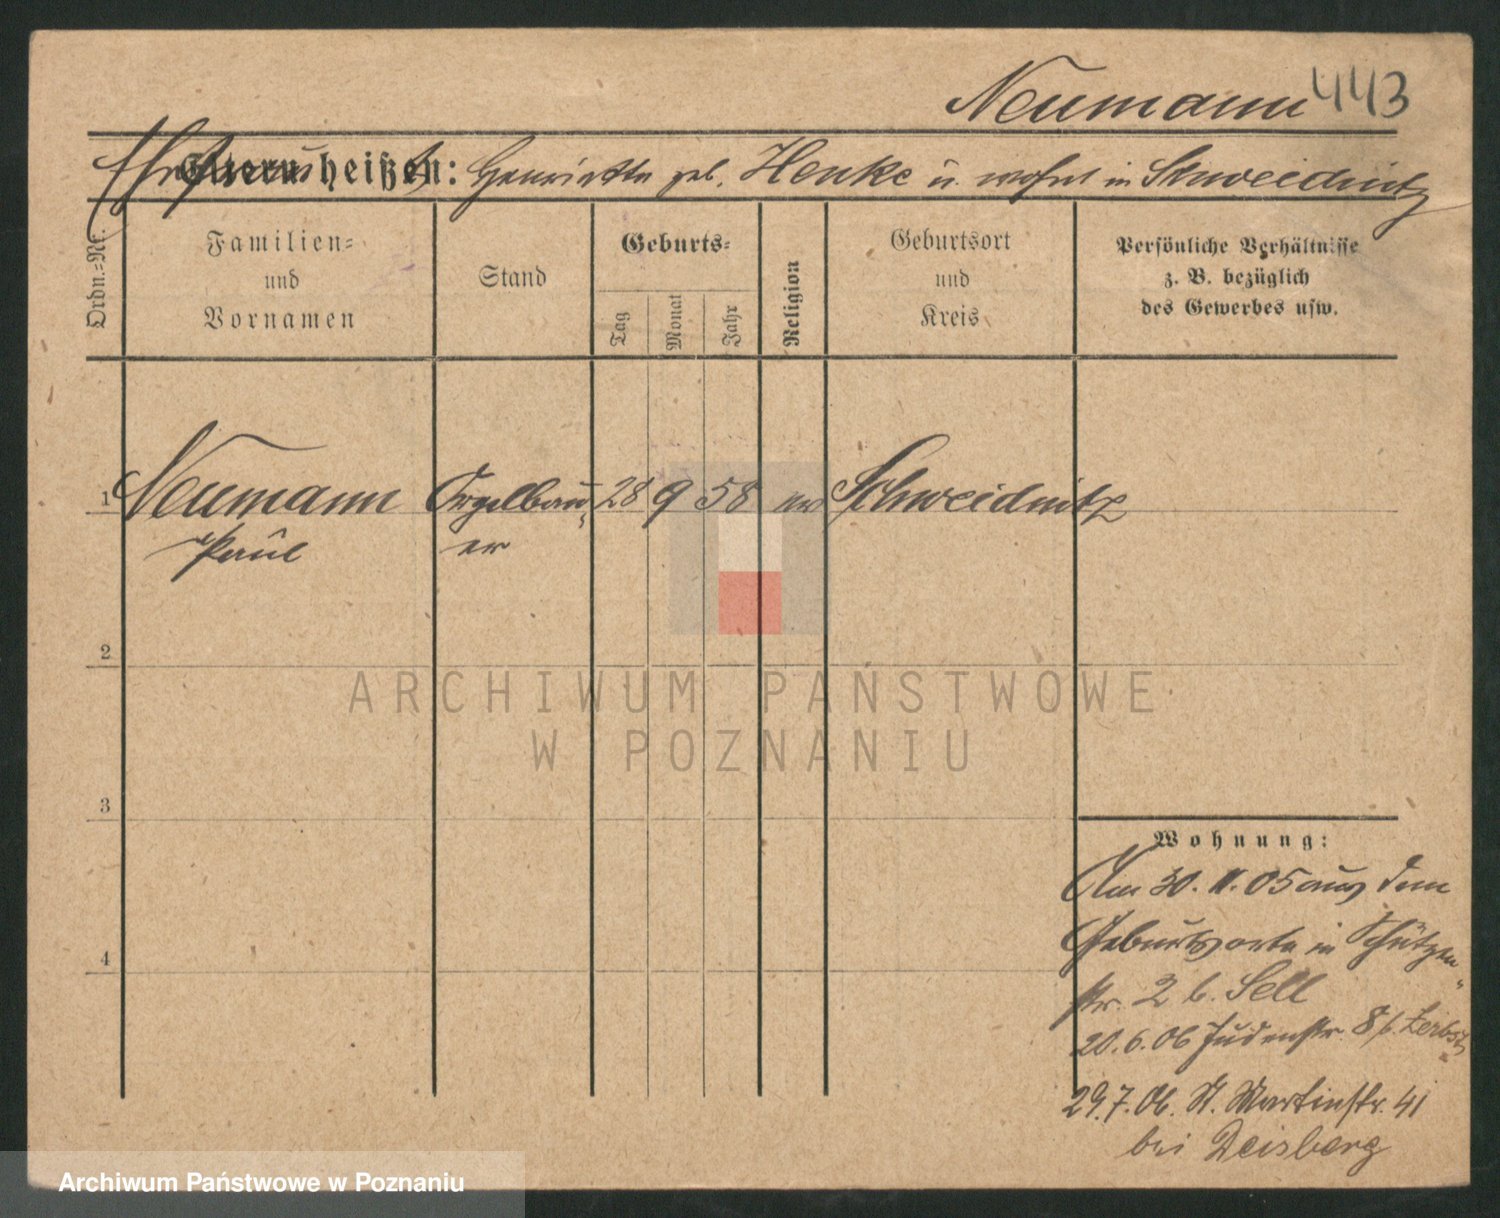 Neumann 443
Eltern heißen: Henriette geb. Henke u. wohnt in Schweidnitz
Ordn.=Nr.
Familien=
und
Vornamen
Stand
Geburts=
Tag
Monat
Jahr
Religion
Geburtsort
und
Kreis
Persönliche Verhältnisse
z. B. bezüglich
des Gewerbes usw.
1 Neumann Orgelbau= 28 9 58 Schweidnitz
Paul er
2
3
4
Wohnung:
Am 30. 11. 05 aus dem
Geburtsorte in Schützen=
str. 2 b. Sell
20.6.06 Judenstr. 8 b. Zerbst
29.7.06. St. Martinstr. 41
bei Deisberg
ARCHIWUM PAŃSTWOWE
W POZNANIU
Archiwum Państwowe w Poznaniu